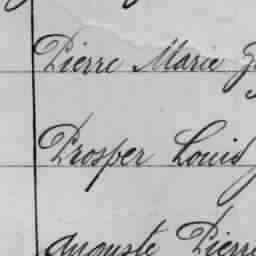 Pierre Marie
Prosper Louis
Auguste Pierre